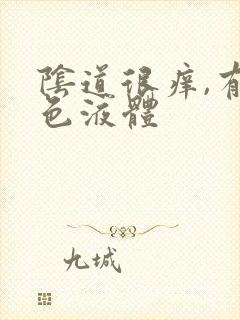 陰道很痒,有
色液體
九城